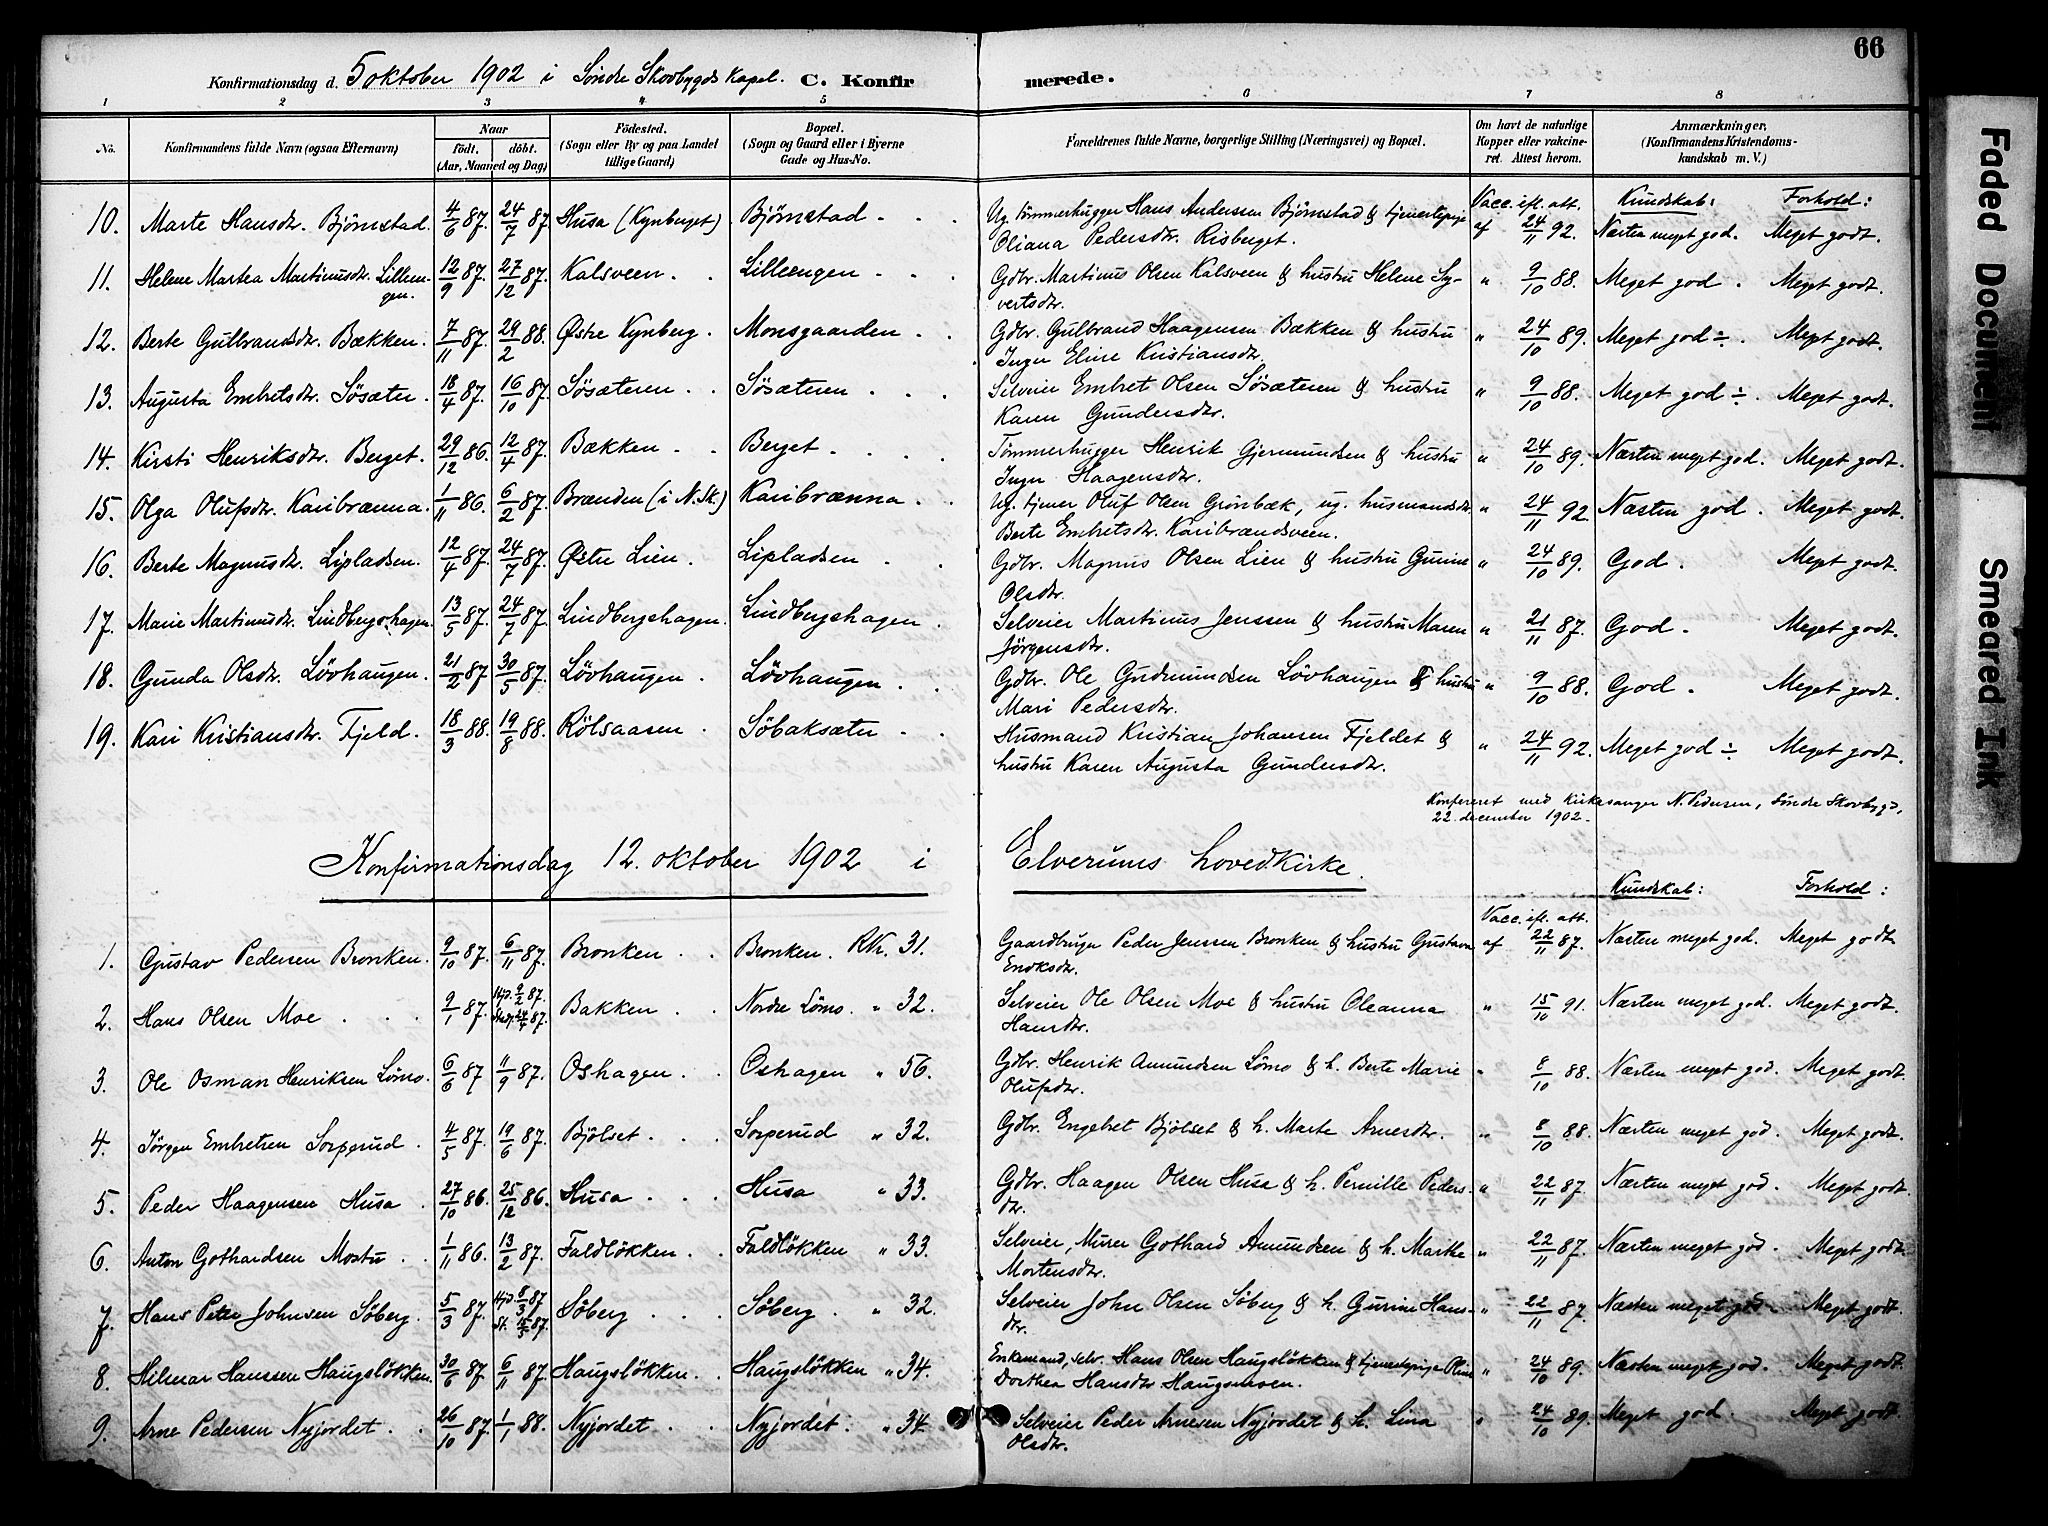 66
Konfirmationsdag d. 5 oktober 1902 i Søndre Skovbygds Kapel. C. Konfirmerede.
1 2 3 4 5 6 7 8
No. Konfirmandens fulde Navn (ogsaa Efternavn) Naar födt. döbt. (Aar, Maaned og Dag) Födested. (Sogn eller By og paa Landet tillige Gaard) Bopæl. (Sogn og Gaard eller i Byerne Gade og Hus-No. Forældrenes fulde Navne, borgerlige Stilling (Næringsvei) og Bopæl. Om havt de naturlige Kopper eller vakcineret. Attest herom. Anmærkninger. (Konfirmandens Kristendomskundskab m. V.)
Vacc. ifl. att. Kundskab: Forhold:
10. Marte Hansdr. Björnstad. 4/6 87. 24/7 87. Husa (Kynberget). Björnstad Ug. tømmerhugger Hans Andersen Björnstad & tjenestepige af 24/11 92. Næsten meget god. Meget godt.
Oliana Pedersdr. Risberget.
11. Helene Martea Martinusdr. Lilleengen. 12/9 87. 27/12 87. Kalsveen. Lilleengen Gdbr. Martinus Olsen Kalsveen & hustru Helene Sy- " 9/10 88. Meget god. Meget godt.
vertsdr.
12. Berte Gulbrandsdr. Bækken. 7/11 87. 29/2 88. Østre Kynberg. Monsgaarden Gdbr. Gulbrand Haagensen Bækken & hustru " 24/10 89. Meget god ÷. Meget godt.
Inger Eline Kristiansdr.
13. Augusta Embretsdr. Sösæter. 18/4 87. 16/10 87. Sösæteren Sösæteren Selveier Embret Olsen Sösæteren & hustru " 9/10 88. Meget god ÷. Meget godt.
Karen Gundersdr.
14. Kirsti Henriksdr. Berget. 29/12 86. 12/4 87. Bækken Berget Tømmerhugger Henrik Gjermundsen & hustru " 24/10 89. Næsten meget god. Meget godt.
Inger Haagensdr.
15. Olga Olufsdr. Karibrænna. 1/11 86. 6/2 87. Brænden (i N. Sk.) Karibrænna Ug. tjener Oluf Olsen Grønbæk, ug. husmandsdr. " 24/11 92 Næsten god. Meget godt.
Berte Embretsdr. Karibrændsveen.
16. Berte Magnusdr. Lipladsen. 12/4 87. 24/7 87. Østre Lien. Lipladsen Gdbr. Magnus Olsen Lien & hustru Gunine " 24/10 89. God. Meget godt.
Olsdr.
17. Marie Martinusdr. Lindbergshagen. 13/5 87. 24/7 87. Lindbergshagen. Lindbergshagen Selveier Martinus Jenssen & hustru Maren " 21/11 87. God. Meget godt.
Jörgensdr.
18. Gunda Olsdr. Lövhaugen. 21/2 87. 30/5 87. Lövhaugen Lövhaugen Gdbr. Ole Gudmundsen Lövhaugen & hustru " 9/10 88. God. Meget godt.
Mari Pedersdr.
19. Kari Kristiansdr. Fjeld. 18/3 88. 19/8 88. Rölsaasen Söbaksæter Husmand Kristian Johansen Fjeldet & " 24/11 92. Meget god ÷ Meget godt.
hustru Karen Augusta Gundersdr.
Konfereret med Kirkesanger N. Pedersen, Søndre Skovbygd,
22. december 1902.
Konfirmationsdag 12. oktober 1902 i Elverums hovedkirke.
Vacc. ifl. att. Kundskab: Forhold:
1. Gustav Pedersen Bronken. 9/10 87. 6/11 87. Bronken Bronken. Rk. 31. Gaardbruger Peder Jenssen Bronken & hustru Gustava af 22/11 87. Næsten meget god. Meget godt
2. Hans Olsen Moe 9/1 87. Hjd. 9/2 87. 24/4 87. Bakken Nordre Lömo. " 32. Selveier Ole Olsen Moe & hustru Oleanna " 15/10 91. Næsten meget god. Meget godt.
Hansdr.
3. Ole Osman Henriksen Lömo. 6/6 87 11/9 87. Oshagen Oshagen " 56. Gdbr. Henrik Amundsen Lömo & h. Berte Marie " 8/10 88. Næsten meget god. Meget godt.
Olufsdr.
4. Jörgen Embretsen Sorperud. 4/5 87. 19/6 87. Bjölset Sorperud " 32. Gdbr. Engebret Bjölset & h. Marte Arnesdr. " 8/10 88. Næsten meget god. Meget godt.
5. Peder Haagensen Husa 27/10 86. 25/12 86. Husa Husa " 33. Gdbr. Haagen Olsen Husa & h. Pernille Peders- " 22/11 87. Næsten meget god. Meget godt.
dr.
6. Anton Gothardsen Mostu 1/11 86. 13/2 87. Faldlökken Faldlökken " 33. Selveier, Murer Gothard Amundsen & h. Marthe " 22/11 87. Næsten meget god. Meget godt.
Mortensdr.
7. Hans Peter Johnsen Söberg. 5/3 87. Hjd. 8/3 87 St. 87. Söberg Söberg " 32. Selveier John Olsen Söberg & h. Gurine Hans- " 22/11 87. Næsten meget god. Meget godt.
dr.
8. Hilmar Hanssen Haugslökken. 30/6 87 6/11 87. Haugslökken. Haugslökken " 34. Enkemand, selv. Hans Olsen Haugslökken & tjenestepige Oline " 24/10 89. Næsten meget god. Meget godt.
Dorthea Hansdr Haugsmoen.
9. Arne Pedersen Nyjordet 26/10 87. 1/1 88. Nyjordet Nyjordet. " 34. Selveier Peder Arnesen Nyjordet & h. Lina " 24/10 89. Meget god. Meget godt.
Olsdr.
Faded Document
Smeared Ink